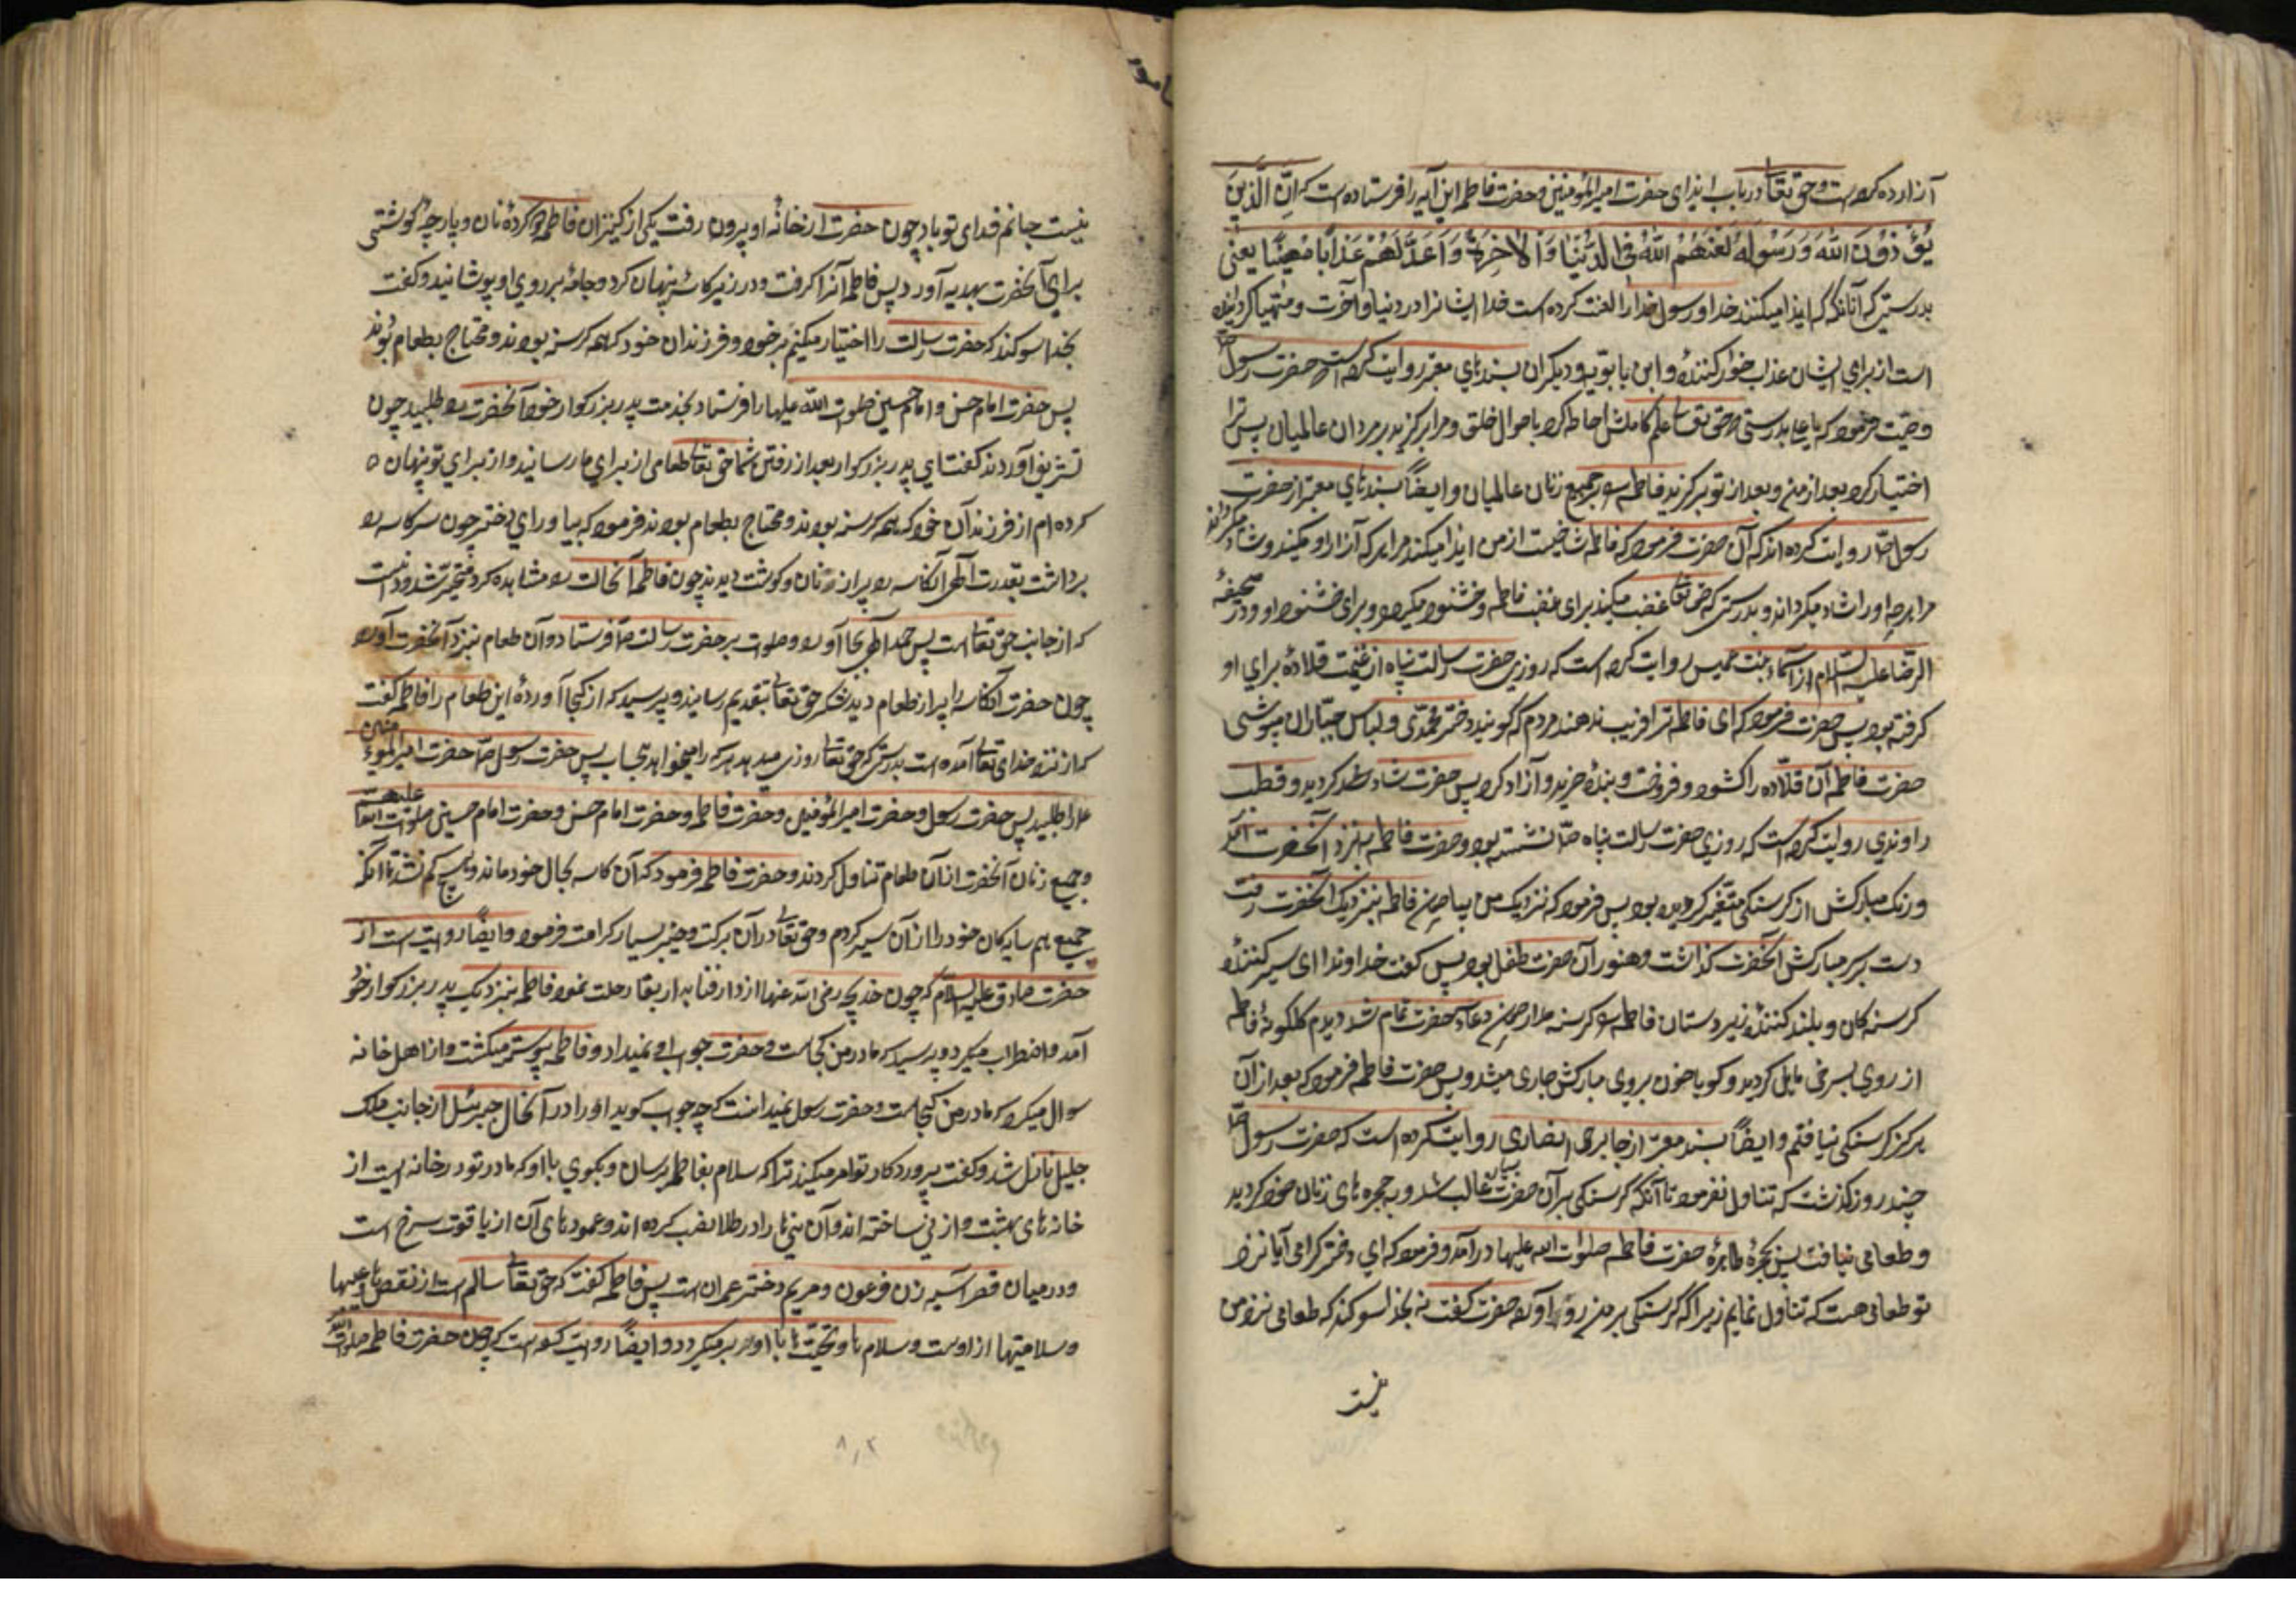 آزارده کرده است و حق تعالی در باب ایذای حضرت امیرالمؤمنین و حضرت فاطمه این آیه را فرستاده است که اِنَّ الَّذینَ
یُؤْذُونَ اللّٰهَ وَرَسُولَهُ لَعَنَهُمُ اللّٰهُ فِی الدُّنْیَا وَالْاٰخِرَةِ وَاَعَدَّ لَهُمْ عَذَابًا مُهِینًا یعنی
بدرستی که آنانکه ایذا میکنند خدا و رسول خدا را لعنت کرده است خدا ایشانرا در دنیا و آخرت و مهیا کردانیده
است از برای ایشان عذاب خوار کننده و ابن بابویه و دیکران بسندهای معتبر روایت کرده است حضرت رسول ص
وصیت فرمود که یا علی بدرستی که حق تعالی علم کاملش احاطه کرد باحوال خلق و مرا برکزید بر مردان عالمیان پس ترا
اختیار کرد بعد از من و بعد از تو برکزید فاطمه را بر جمیع زنان عالمیان و ایضاً بسندهای معتبر از حضرت
رسول ص روایت کرده اند که آن حضرت فرمود که فاطمه شاخیست از من ایذا میکند مرا هر که آزار او میکند و شاد میکرداند
مرا هرچه او را شاد میکرداند و بدرستی که حق تعالی غضب میکند برای غضب فاطمه و خشنود میکردد برای خشنودی او و در صحیفه
الرضا علیه السلام از اسماء بنت عمیس روایت کرده است که روزی حضرت رسالت پناه از غنیمت قلادهٔ برای او
کرفته بود پس حضرت فرمود که ای فاطمه ترا فریب ندهند مردم که کویند دختر محمدی و لباس جباران میپوشی
حضرت فاطمه آن قلاده را کشود و فروخت و بنده خرید و آزاد کرد پس حضرت شاد شد کردید و قطب
راوندی روایت کرده است که روزی حضرت رسالت پناه ص نشسته بود و حضرت فاطمه بنزد آنحضرت آمد
و رنک مبارکش از کرسنکی متغیر کردیده بود پس فرمود که نزدیک من بیا چون فاطمه بنزدیک آنحضرت رفت
دست بر سر مبارکش آنحضرت کذاشت و هنوز آن حضرت طفل بود پس کفت خداوندا ای سیر کنندهٔ
کرسنه کان و بلند کنندهٔ زیردستان فاطمه را کرسنه مدار چون دعای حضرت تمام شد دیدم کلکونهٔ فاطمه
از روی بسرخی مایل کردید و کویا خون بروی مبارکش جاری میشد و پس حضرت فاطمه فرمود که بعد از آن
هرکز کرسنکی نیافتم و ایضاً بسند معتبر از جابر انصاری روایت کرده است که حضرت رسول ص
چند روز کذشت که تناول نفرمود تا آنکه کرسنکی بر آن حضرت بسیار غالب شد و به حجره های زنان خود کردید
و طعامی نیافت پس بحجرهٔ طاهرهٔ حضرت فاطمه صلوات الله علیها درآمد و فرمود که ای دختر کرامی آیا نزد
تو طعامی هست که تناول نمایم زیرا که کرسنکی بر من روی آورده حضرت کفت نه بخدا سوکند که طعامی نزد من
نیست
نیست جانم فدای تو باد چون حضرت از خانهٔ او بیرون رفت یکی از کنیزان فاطمه دو کردهٔ نان و پارچهٔ کوشتی
برای آنحضرت بهدیه آورد پس فاطمه آنرا کرفت و در زیر کاسه پنهان کرد و جامه بر روی او پوشانید و کفت
بخدا سوکند که حضرت رسالت را اختیار میکنم بر خود و فرزندان خود که همه کرسنه بودند و محتاج بطعام بودند
پس حضرت امام حسن و امام حسین صلوات الله علیهما را فرستاد بخدمت پدر بزرکوار خود آنحضرت را طلبید چون
تشریف آوردند کفت ای پدر بزرکوار بعد از رفتن شما حق تعالی طعامی از برای ما رسانید و از برای تو پنهان
کرده ام از فرزندان خود که همه کرسنه بودند و محتاج بطعام بودند فرمود که بیاور ای دختر چون سر کاسه را
برداشت بقدرت الهی آن کاسه را پر از نان و کوشت دیدند چون فاطمه آنحالت را مشاهده کرد متحیر شد و دانست
که از جانب حق تعالی است پس حمد الهی بجا آورد و صلوات بر حضرت رسالت ص فرستاد و آن طعام نزد آنحضرت آورد
چون حضرت آن کاسه را پر از طعام دید شکر حق تعالی بتقدیم رسانید و پرسید که از کجا آوردهٔ این طعام را فاطمه کفت
که از نزد خدای تعالی آمده است بدرستی که حق تعالی روزی میدهد هر که را میخواهد بیحساب پس حضرت رسول ص حضرت امیرالمؤمنین
را طلبید پس حضرت رسول و حضرت امیرالمؤمنین و حضرت فاطمه و حضرت امام حسن و حضرت امام حسین صلوات الله علیهم
و جمیع زنان آنحضرت از آن طعام تناول کردند و حضرت فاطمه فرمود که آن کاسه بحال خود ماند و هیچ کم نشد تا آنکه
جمیع همسایه کان خود را از آن سیر کردم و حق تعالی در آن برکت و خیر بسیار کرامت فرمود و ایضاً روایت است از
حضرت صادق علیه السلام که چون خدیجه رضی الله عنها از دار فنا بدار بقا رحلت نمود فاطمه بنزدیک پدر بزرکوار خود
آمد و اضطراب میکرد و پرسید که مادر من کجاست و حضرت جواب او نمیداد و فاطمه پیوسته میکشت و از اهل خانه
سوال میکرد که مادر من کجاست و حضرت رسول نمیدانست که چه جواب کوید او را در آنحال جبرئیل از جانب ملک
جلیل نازل شد و کفت پروردکار تو امر میکند ترا که سلام بفاطمه برسان و بکوی با او که مادر تو در خانه ایست از
خانه های بهشت و از نی ساخته اند و آن نی ها را در طلا نصب کرده اند و عمودهای آن از یاقوت سرخ است
و در میان قصر آسیه زن فرعون و مریم دختر عمران است پس فاطمه کفت که حق تعالی سالم است از نقص و عیبها
و سلامتیها از اوست و سلامها و تحیتها با او بر میکردد و ایضاً روایت کرده است که چون حضرت فاطمه صلوات الله